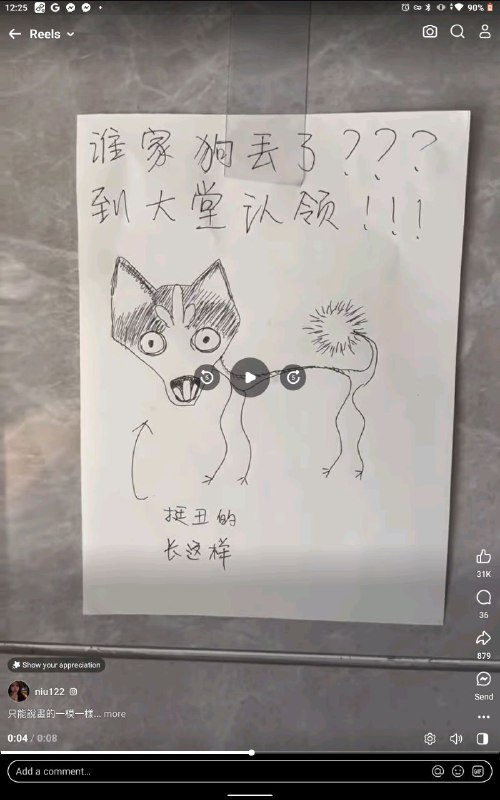 12:25
90%
Reels
谁家狗丢了???
到大堂认领!!!
5
5
挺丑的
长这样
31K
36
879
Send
Show your appreciation
niu122
只能說畫的一模一樣... more
0:04 / 0:08
Add a comment...
GIF